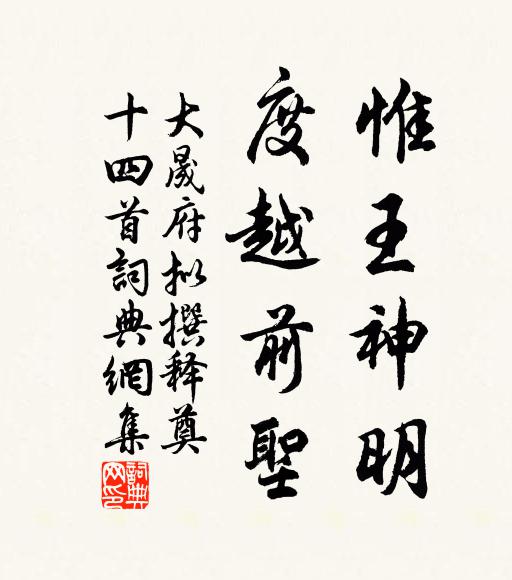 惟王神明
度越前聖
大晟府拟撰释奠
十四首詞典網集
詞典网印